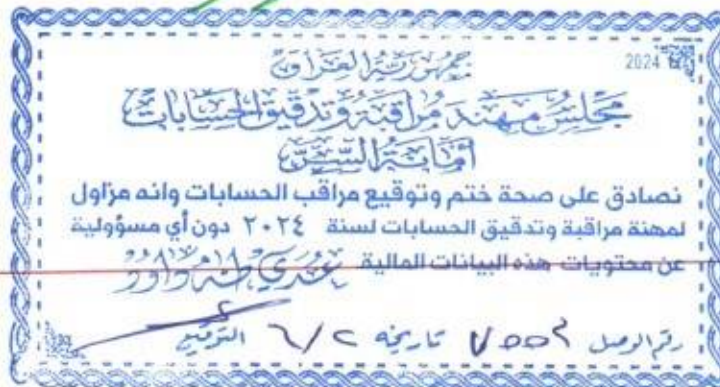 2024
جمهورية العراق
مجلس مهنة مراقبة وتدقيق الحسابات
أمانة السر
نصادق على صحة ختم وتوقيع مراقب الحسابات وانه مزاول
لمهنة مراقبة وتدقيق الحسابات لسنة ٢٠٢٤ دون أي مسؤولية
عن محتويات هذه البيانات المالية
عدي طه داود
رقم الوصل تاريخه ٦/٢ الترقيم